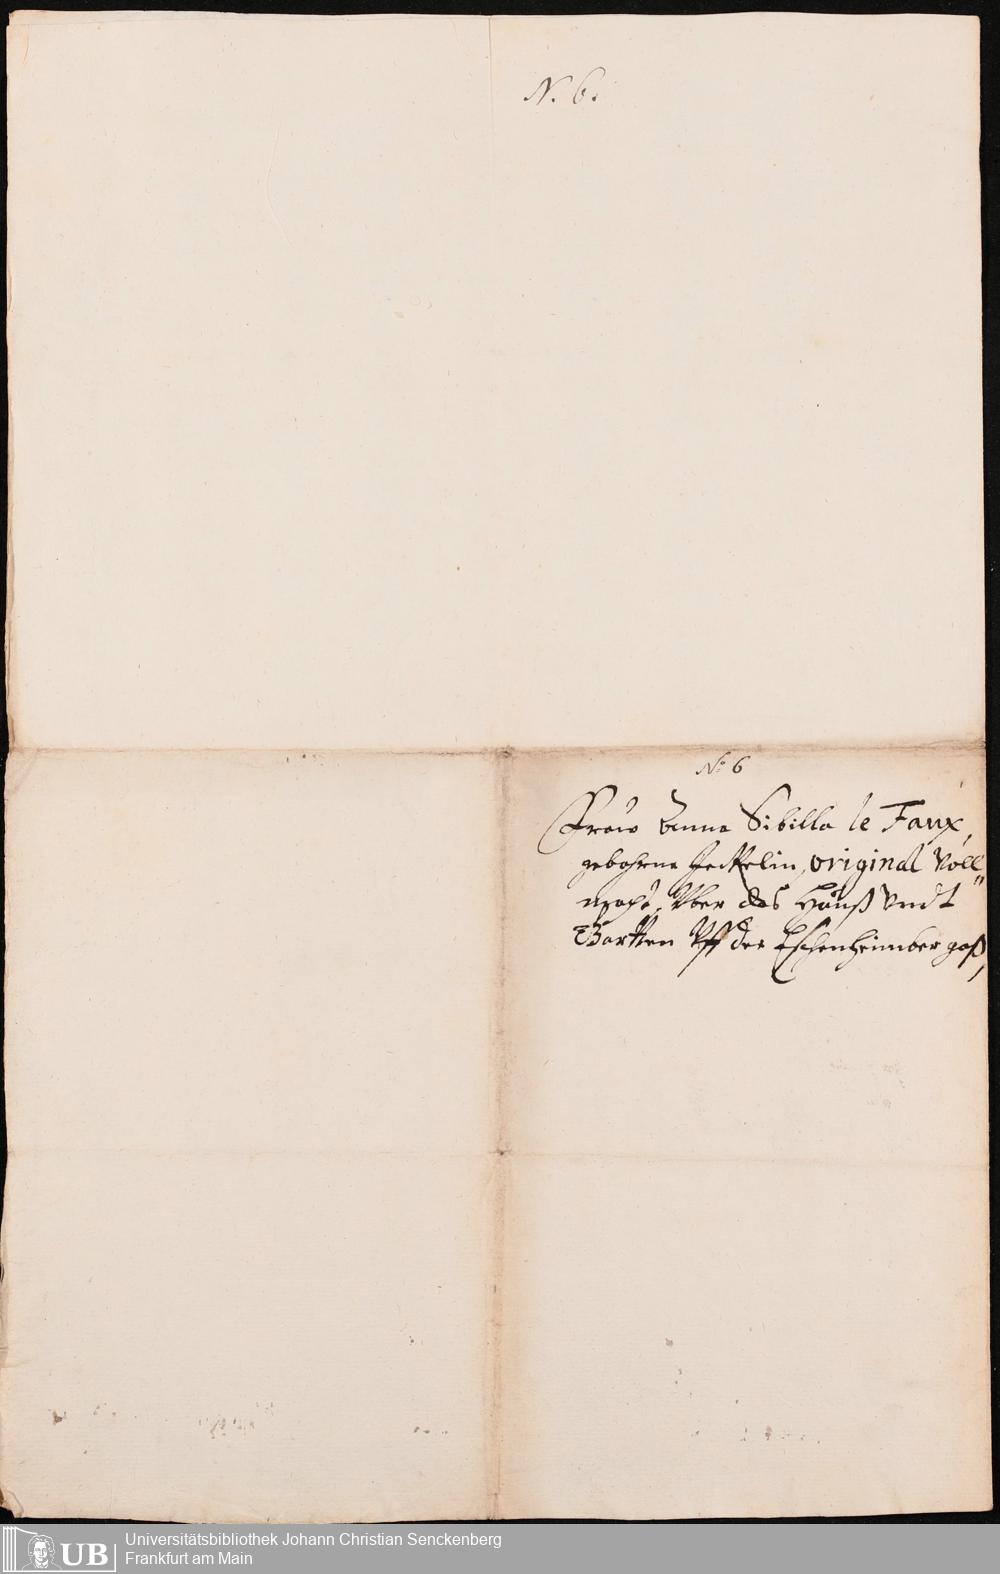 N. 6.
No 6
Fraw Anna Sibilla le Faux,
gebohrne Jeckelin, original Voll„
macht, Vber das Hauß Vndt
Gartten Vff der Eschenheimber gaß,
UB
Universitätsbibliothek Johann Christian Senckenberg
Frankfurt am Main